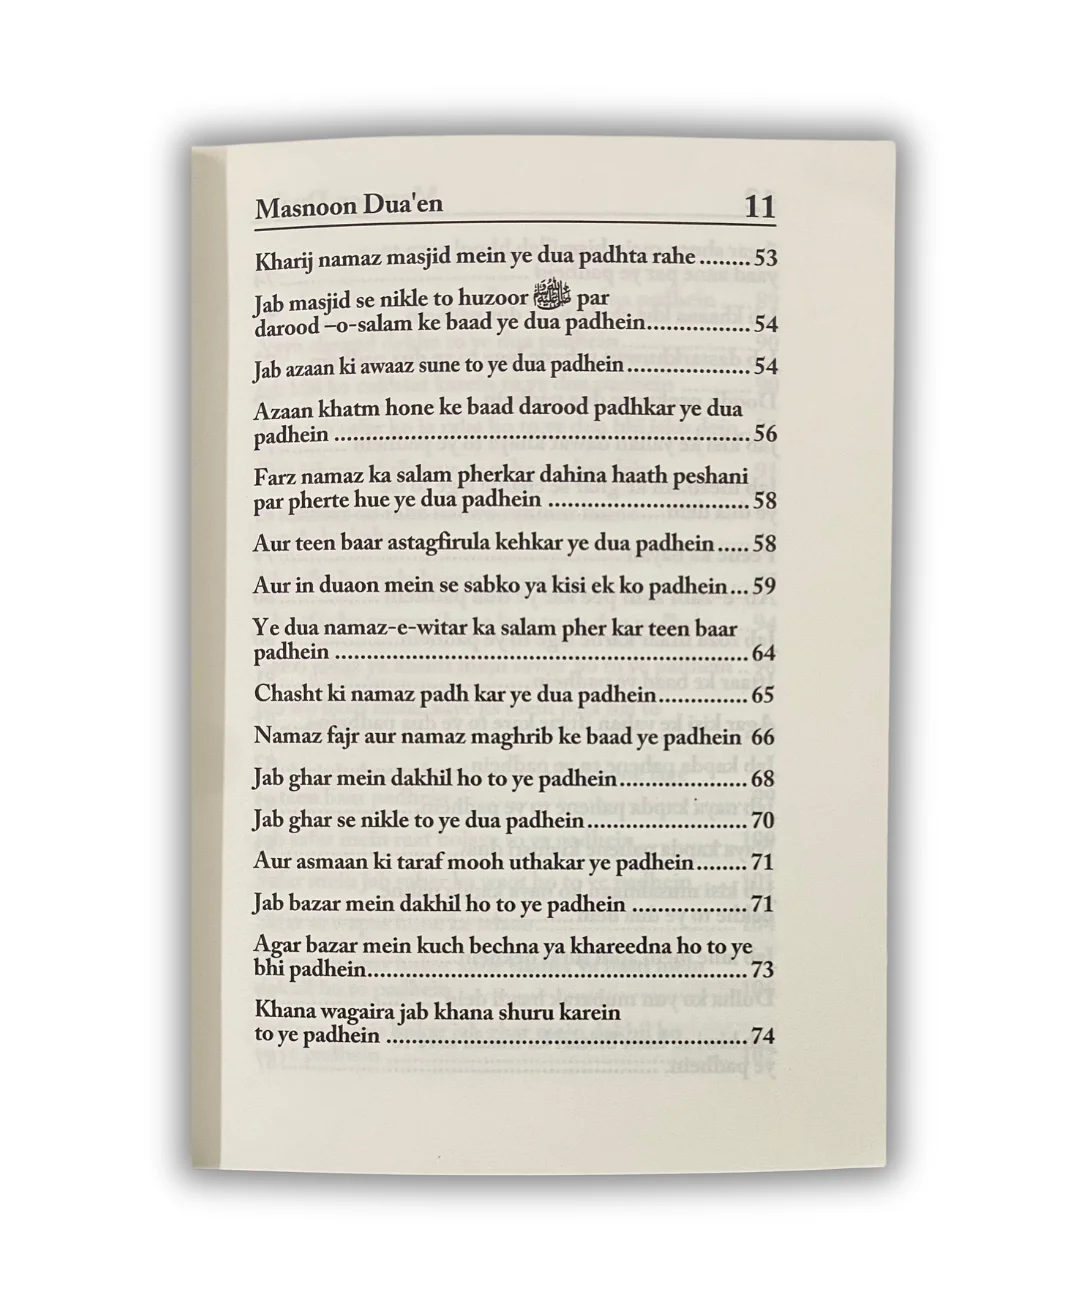 Masnoon Dua'en 11
Kharij namaz masjid mein ye dua padhta rahe ........ 53
Jab masjid se nikle to huzoor ﷺ par
darood –o-salam ke baad ye dua padhein................ 54
Jab azaan ki awaaz sune to ye dua padhein ................... 54
Azaan khatm hone ke baad darood padhkar ye dua
padhein .................................................................. 56
Farz namaz ka salam pherkar dahina haath peshani
par pherte hue ye dua padhein ................................ 58
Aur teen baar astagfirula kehkar ye dua padhein ..... 58
Aur in duaon mein se sabko ya kisi ek ko padhein ... 59
Ye dua namaz-e-witar ka salam pher kar teen baar
padhein .................................................................. 64
Chasht ki namaz padh kar ye dua padhein.............. 65
Namaz fajr aur namaz maghrib ke baad ye padhein 66
Jab ghar mein dakhil ho to ye padhein.................... 68
Jab ghar se nikle to ye dua padhein ......................... 70
Aur asmaan ki taraf mooh uthakar ye padhein........ 71
Jab bazar mein dakhil ho to ye padhein .................. 71
Agar bazar mein kuch bechna ya khareedna ho to ye
bhi padhein............................................................ 73
Khana wagaira jab khana shuru karein
to ye padhein ......................................................... 74